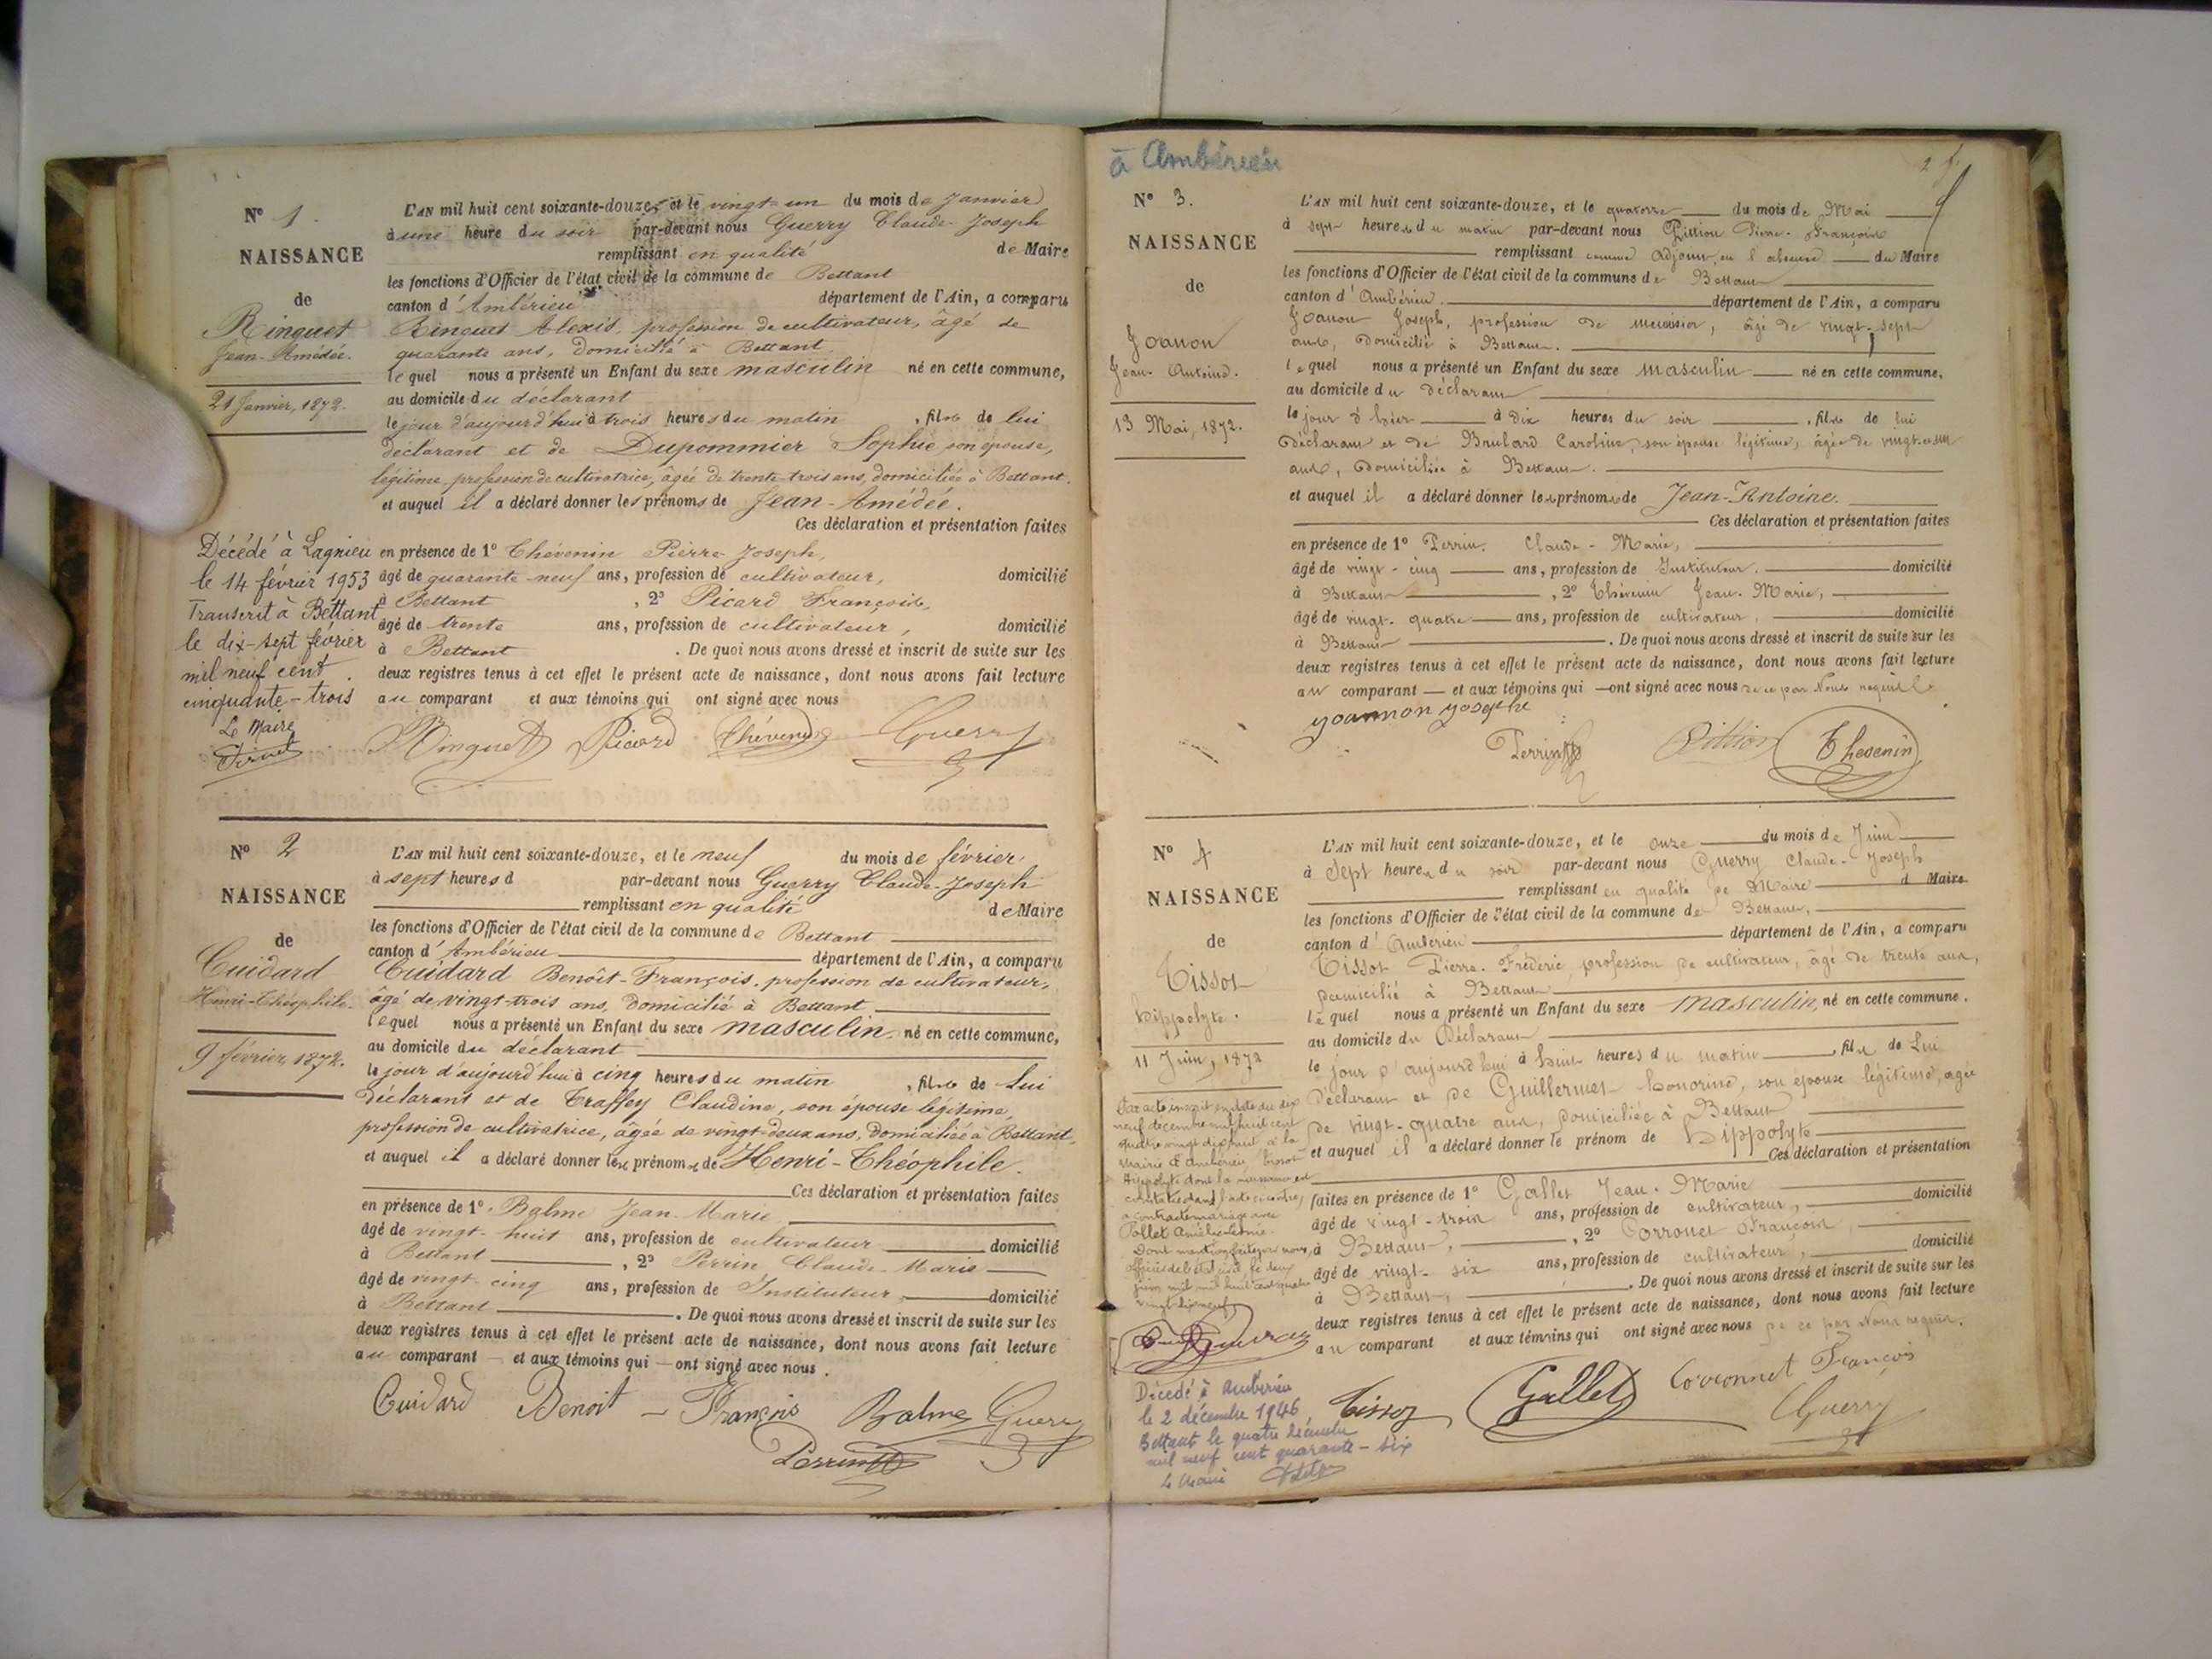 N° 1.
NAISSANCE
de
Ringuet
Jean-Amédée.
21 Janvier, 1872.
L'AN mil huit cent soixante-douze, et le vingt-un du mois de Janvier
à une heure du soir par-devant nous Guerry Claude-Joseph
remplissant en qualité de Maire
les fonctions d'Officier de l'état civil de la commune de Bettant
canton d'Ambérieu département de l'Ain, a comparu
Ringuet Alexis, profession de cultivateur, âgé de
quarante ans, domicilié à Bettant
lequel nous a présenté un Enfant du sexe masculin né en cette commune,
au domicile du déclarant
le jour d'aujourd'hui à trois heures du matin, fils de lui
déclarant et de Dupommier Sophie son épouse,
légitime, profession de cultivatrice, âgée de trente-trois ans, domiciliée à Bettant.
et auquel il a déclaré donner les prénoms de Jean-Amédée.
Ces déclaration et présentation faites
en présence de 1° Thévenin Pierre-Joseph,
âgé de quarante-neuf ans, profession de cultivateur, domicilié
à Bettant, 2° Picard François,
âgé de trente ans, profession de cultivateur, domicilié
à Bettant. De quoi nous avons dressé et inscrit de suite sur les
deux registres tenus à cet effet le présent acte de naissance, dont nous avons fait lecture
au comparant et aux témoins qui ont signé avec nous
Ringuet Picard Thévenin Guerry
Décédé à Lagnieu
le 14 février 1953
Transcrit à Bettant
le dix-sept février
mil neuf cent
cinquante-trois
Le Maire
N° 2
NAISSANCE
de
Cuidard
Henri-Théophile.
9 février, 1872.
L'AN mil huit cent soixante-douze, et le neuf du mois de février,
à sept heures d par-devant nous Guerry Claude-Joseph
remplissant en qualité de Maire
les fonctions d'Officier de l'état civil de la commune de Bettant
canton d'Ambérieu département de l'Ain, a comparu
Cuidard Benoît-François, profession de cultivateur,
âgé de vingt-trois ans, domicilié à Bettant
lequel nous a présenté un Enfant du sexe masculin, né en cette commune,
au domicile du déclarant
le jour d'aujourd'hui à cinq heures du matin, fils de lui
déclarant et de Traffey Claudine, son épouse légitime,
profession de cultivatrice, âgée de vingt-deux ans, domiciliée à Bettant,
et auquel il a déclaré donner les prénoms de Henri-Théophile.
Ces déclaration et présentation faites
en présence de 1° Balme Jean Marie
âgé de vingt-huit ans, profession de cultivateur domicilié
à Bettant, 2° Perrin Claude-Marie
âgé de vingt-cinq ans, profession de Instituteur, domicilié
à Bettant. De quoi nous avons dressé et inscrit de suite sur les
deux registres tenus à cet effet le présent acte de naissance, dont nous avons fait lecture
au comparant et aux témoins qui ont signé avec nous.
Cuidard Benoit-François Balme Guerry
Perrin
à Ambérieu
N° 3.
NAISSANCE
de
Joanon
Jean-Antoine.
13 Mai, 1872.
L'AN mil huit cent soixante-douze, et le quatorze du mois de Mai
à sept heures du matin par-devant nous Pittion Pierre-François
remplissant comme adjoint, en l'absence du Maire
les fonctions d'Officier de l'état civil de la commune de Bettant
canton d'Ambérieu département de l'Ain, a comparu
Joanon Joseph, profession de menuisier, âgé de vingt-sept
ans, domicilié à Bettant.
lequel nous a présenté un Enfant du sexe masculin né en cette commune,
au domicile du déclarant
le jour d'hier à dix heures du soir, fils de lui
déclarant et de Brulard Caroline, son épouse légitime, âgée de vingt-et-un
ans, domiciliée à Bettant.
et auquel il a déclaré donner les prénoms de Jean-Antoine.
Ces déclaration et présentation faites
en présence de 1° Perrin, Claude-Marie,
âgé de vingt-cinq ans, profession de Instituteur, domicilié
à Bettant, 2° Thévenin Jean-Marie,
âgé de vingt-quatre ans, profession de cultivateur, domicilié
à Bettant. De quoi nous avons dressé et inscrit de suite sur les
deux registres tenus à cet effet le présent acte de naissance, dont nous avons fait lecture
au comparant et aux témoins qui ont signé avec nous de ce par Nous requis.
yoannon yosephe
Perrin Pittion Thevenin
N° 4
NAISSANCE
de
Tissot
hippolyte.
11 Juin, 1872
L'AN mil huit cent soixante-douze, et le onze du mois de Juin
à Sept heures du soir par-devant nous Guerry Claude-Joseph
remplissant en qualité de Maire d Maire
les fonctions d'Officier de l'état civil de la commune de Bettant,
canton d'Ambérieu département de l'Ain, a comparu
Tissot Pierre-Frédéric, profession de cultivateur, âgé de trente ans,
domicilié à Bettant
lequel nous a présenté un Enfant du sexe masculin, né en cette commune,
au domicile du Déclarant
le jour d'aujourd'hui à huit heures du matin, fils de Lui
Déclarant et de Guillermet honorine, son épouse légitime, agée
de vingt-quatre ans, domiciliée à Bettant
et auquel il a déclaré donner le prénom de hippolyte
Ces déclaration et présentation
faites en présence de 1° Gallet Jean-Marie
âgé de vingt-trois ans, profession de cultivateur, domicilié
à Bettant, 2° Corronet François
âgé de vingt-six ans, profession de cultivateur, domicilié
à Bettant, De quoi nous avons dressé et inscrit de suite sur les
deux registres tenus à cet effet le présent acte de naissance, dont nous avons fait lecture
au comparant et aux témoins qui ont signé avec nous de ce par Nous requis.
Tissot Gallet Corronnet François
Guerry
Par acte inscrit en date du dix
neuf décembre mil huit cent
quatre vingt dix huit à la
mairie d'Ambérieu, Tissot
Hippolyte dont la naissance est
constatée dans l'acte ci-contre,
a contracté mariage avec
Pollet Amélie
Dont mention faite par nous,
officier de l'état civil le deux
juin mil huit cent quatre
vingt dix neuf
Décédé à Ambérieu
le 2 décembre 1946
Bettant le quatre décembre
mil neuf cent quarante-six
Le Maire